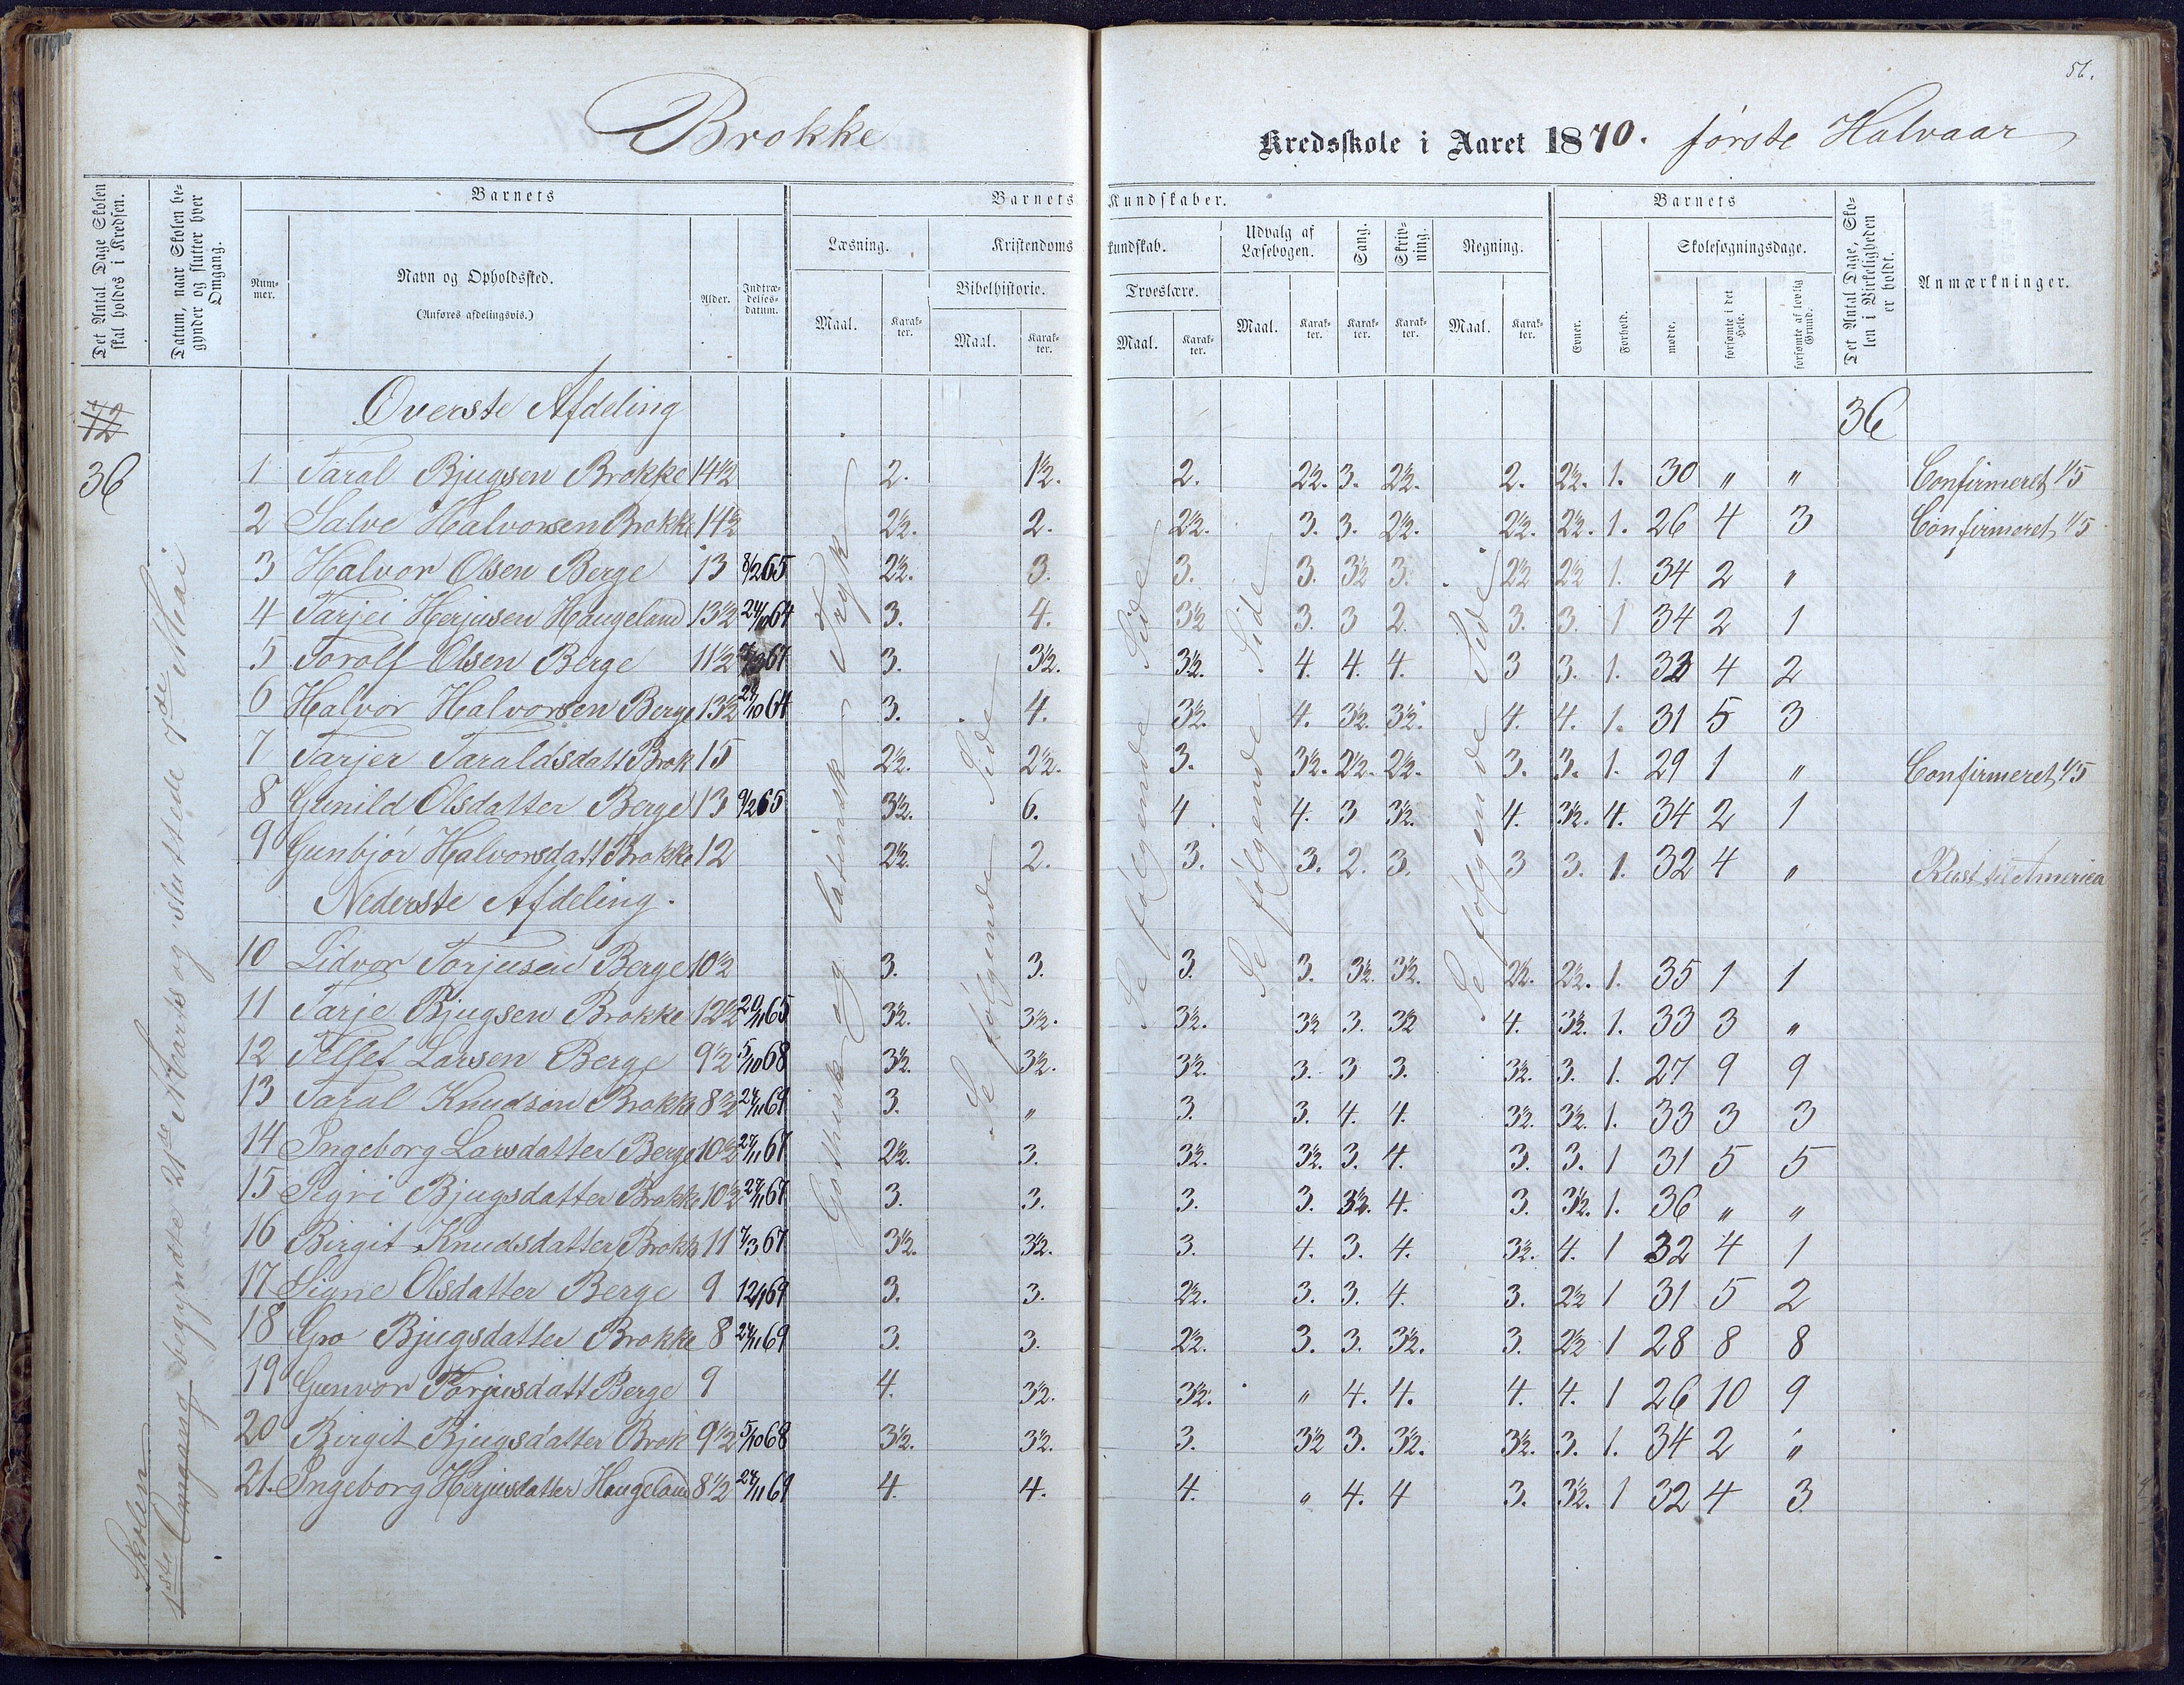 56.
Brokke Kredsskole i Aaret 1870. første Halvaar
Det Antal Dage Skolen skal holdes i Kredsen.
Datum, naar Skolen begynder og slutter hver Omgang.
Barnets
Num-mer.
Navn og Opholdssted.
(Anføres afdelingsvis.)
Alder.
Indtræ-delses-datum.
Barnets Kundskaber.
Læsning.
Maal. Karak-ter.
Kristendoms kundskab.
Bibelhistorie.
Maal. Karak-ter.
Troeslære.
Maal. Karak-ter.
Udvalg af Læsebogen.
Maal. Karak-ter.
Sang.
Karak-ter.
Skriv-ning.
Karak-ter.
Regning.
Maal. Karak-ter.
Barnets
Evner.
Forhold.
Skolesøgningsdage.
mødte.
forsømte i det Hele.
forsømte af lovlig Grund.
Det Antal Dage, Sko-len i Virkeligheden er holdt.
Anmærkninger.
72
36
Skolen
1ste Omgang begyndte 21de Marts og sluttede 7de Mai
Gothisk og latinsk Tryk
Se følgende Side
Se følgende Side
Se følgende Side
Se følgende Side
Øverste Afdeling 36
1 Taral Bjugsen Brokke 14½ 2. 1½. 2. 2½. 3. 2½. 2. 2½. 1. 30 " " Confirmeret 1/5
2 Salve Halvorsen Brokke 14½ 2½. 2. 2½. 3. 3. 2½. 2½. 2½. 1. 26 4 3 Confirmeret 1/5
3 Halvor Olsen Berge 13 8/2 65 2½. 3. 3. 3. 3½ 3. 2½ 2½ 1. 34 2 "
4 Tarjei Herjusen Haugeland 13½ 24/10 64 3. 4. 3½ 3. 3 2. 3. 3. 1 34 2 1
5 Torolf Olsen Berge 11½ 67 3. 3½. 3½. 4. 4. 4. 3 3. 1. 32 4 2
6 Halvor Halvorsen Berge 13½ 24/10 64 3. 4. 3½. 4. 3½. 3½. 4. 4. 1. 31 5 3
7 Tarjer Taraldsdatt Brok 15 2½. 2½. 3. 3½. 2½. 2½. 3. 3. 1. 29 1 " Confirmeret 1/5
8 Gunild Olsdatter Berge 13 9/2 65 3½. 6. 4 4. 3 3½. 4. 3½. 4. 34 2 1
9 Gunbjør Halvorsdatt Brokke 12 2½. 2. 3. 3. 2. 3. 3 3. 1. 32 4 " Reist til America
Nederste Afdeling.
10 Lidvor Torjusen Berge 10½ 3. 3. 3. 3. 3½. 3½. 2½. 2½. 1. 35 1 1
11 Tarje Bjugsen Brokke 12½ 20/11 65 3½. 3½. 3½. 3½ 3. 3½ 4. 3½. 1. 33 3 "
12 Tellef Larsen Berge 9½ 5/10 68 3½. 3½. 3½. 3. 3 3. 3½. 3. 1. 27 9 9
13 Taral Knudson Brokke 8½ 24/11 69 3. " 3. 3. 4. 4. 3½. 3½. 1. 33 3 3
14 Ingeborg Larsdatter Berge 10½ 27/11 67 2½. 3. 3½. 3½. 3. 4. 3. 3. 1 31 5 5
15 Sigri Bjugsdatter Brokke 10½ 27/11 67 3. 3. 3. 3. 3½. 4. 3. 3½. 1. 36 " "
16 Birgit Knudsdatter Brokk 11 7/3 67 3½. 3½. 3. 4. 3. 4. 3½. 4. 1 32 4 1
17 Signe Olsdatter Berge 9 12/1 69 3. 3. 2½. 3. 3. 4. 3. 2½ 1 31 5 2
18 Gro Bjugsdatter Brokke 8 24/11 69 3. 3. 2½. 3. 3. 3½. 3. 2½ 1 28 8 8
19 Gunvor Torjusdatt Berge 9 4. 3½. 3½. " 4. 4. 4. 4. 1 26 10 9
20 Birgit Bjugsdatter Brok 9½ 5/10 68 3½. 3½. 3. 3½ 3. 3½. 3½. 3. 1. 34 2 "
21. Ingeborg Herjusdatter Haugeland 8½ 24/11 69 4. 4. 4. " 4. 4 3. 3½. 1 32 4 3